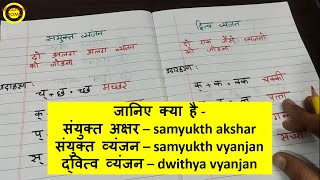 संयुक्त व्यंजन
दो अलग अलग व्यंजन
को जोड़ना
उदाहरण:-
च् + छ = च्छ मच्छर
द्वित्व व्यंजन
दो एक जैसे व्यंजनो
को जोड़ना
उदाहरण:-
क् + क = क्क चक्की
पत्ता
जानिए क्या है -
संयुक्त अक्षर – samyukth akshar
संयुक्त व्यंजन – samyukth vyanjan
द्वित्व व्यंजन – dwithya vyanjan